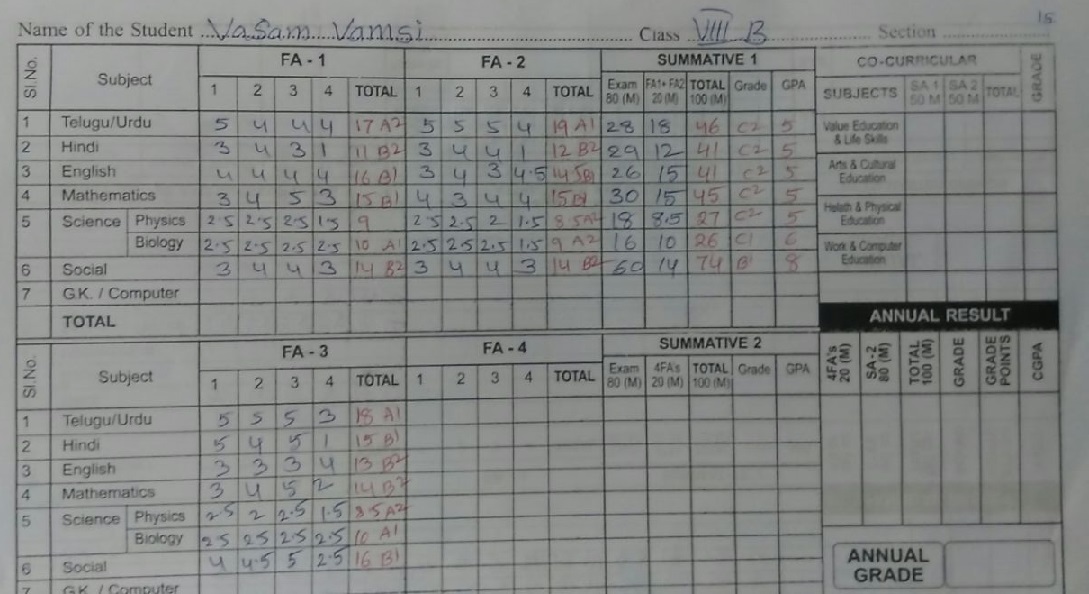 15
Name of the Student Vasam Vamsi Class VIII B Section
Sl.No. Subject FA - 1 FA - 2 SUMMATIVE 1 CO-CURRICULAR GRADE
1 2 3 4 TOTAL 1 2 3 4 TOTAL Exam 80 (M) FA1+ FA2 20 (M) TOTAL 100 (M) Grade GPA SUBJECTS SA 1 50 M SA 2 50 M TOTAL
1 Telugu/Urdu 5 4 4 4 17 A2 5 5 5 4 19 A1 28 18 46 C2 5 Value Education & Life Skills
2 Hindi 3 4 3 1 11 B2 3 4 4 1 12 B2 29 12 41 C2 5
3 English 4 4 4 4 16 B1 3 4 3 4.5 14.5 B1 26 15 41 C2 5 Arts & Cultural Education
4 Mathematics 3 4 5 3 15 B1 4 3 4 4 15 B1 30 15 45 C2 5
5 Science Physics 2.5 2.5 2.5 1.5 9 2.5 2.5 2 1.5 8.5 A2 18 8.5 27 C2 5 Helath & Physical Education
Biology 2.5 2.5 2.5 2.5 10 A1 2.5 2.5 2.5 1.5 9 A2 16 10 26 C1 6 Work & Computer Education
6 Social 3 4 4 3 14 B2 3 4 4 3 14 B2 60 14 74 B1 8
7 G.K. / Computer
TOTAL ANNUAL RESULT
Sl.No. Subject FA - 3 FA - 4 SUMMATIVE 2 4FA's 20 (M) SA-2 80 (M) TOTAL 100 (M) GRADE GRADE POINTS CGPA
1 2 3 4 TOTAL 1 2 3 4 TOTAL Exam 80 (M) 4FA's 20 (M) TOTAL 100 (M) Grade GPA
1 Telugu/Urdu 5 5 5 3 18 A1
2 Hindi 5 4 5 1 15 B1
3 English 3 3 3 4 13 B2
4 Mathematics 3 4 5 2 14 B2
5 Science Physics 2.5 2 2.5 1.5 8.5 A2
Biology 2.5 2.5 2.5 2.5 10 A1
6 Social 4 4.5 5 2.5 16 B1 ANNUAL GRADE
7 G.K. / Computer